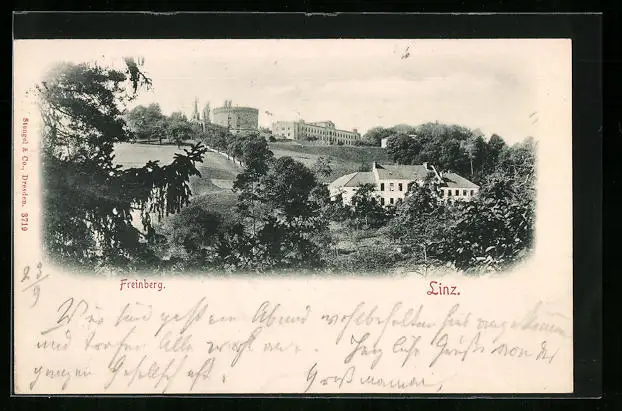 Stengel & Co., Dresden. 3719
Freinberg.
Linz.
23
9
Wir sind gestern Abend wohlbehalten hier angekommen
und trafen Alle wohl an. Herzliche Grüsse von der
ganzen Gesellschaft. Grossmama